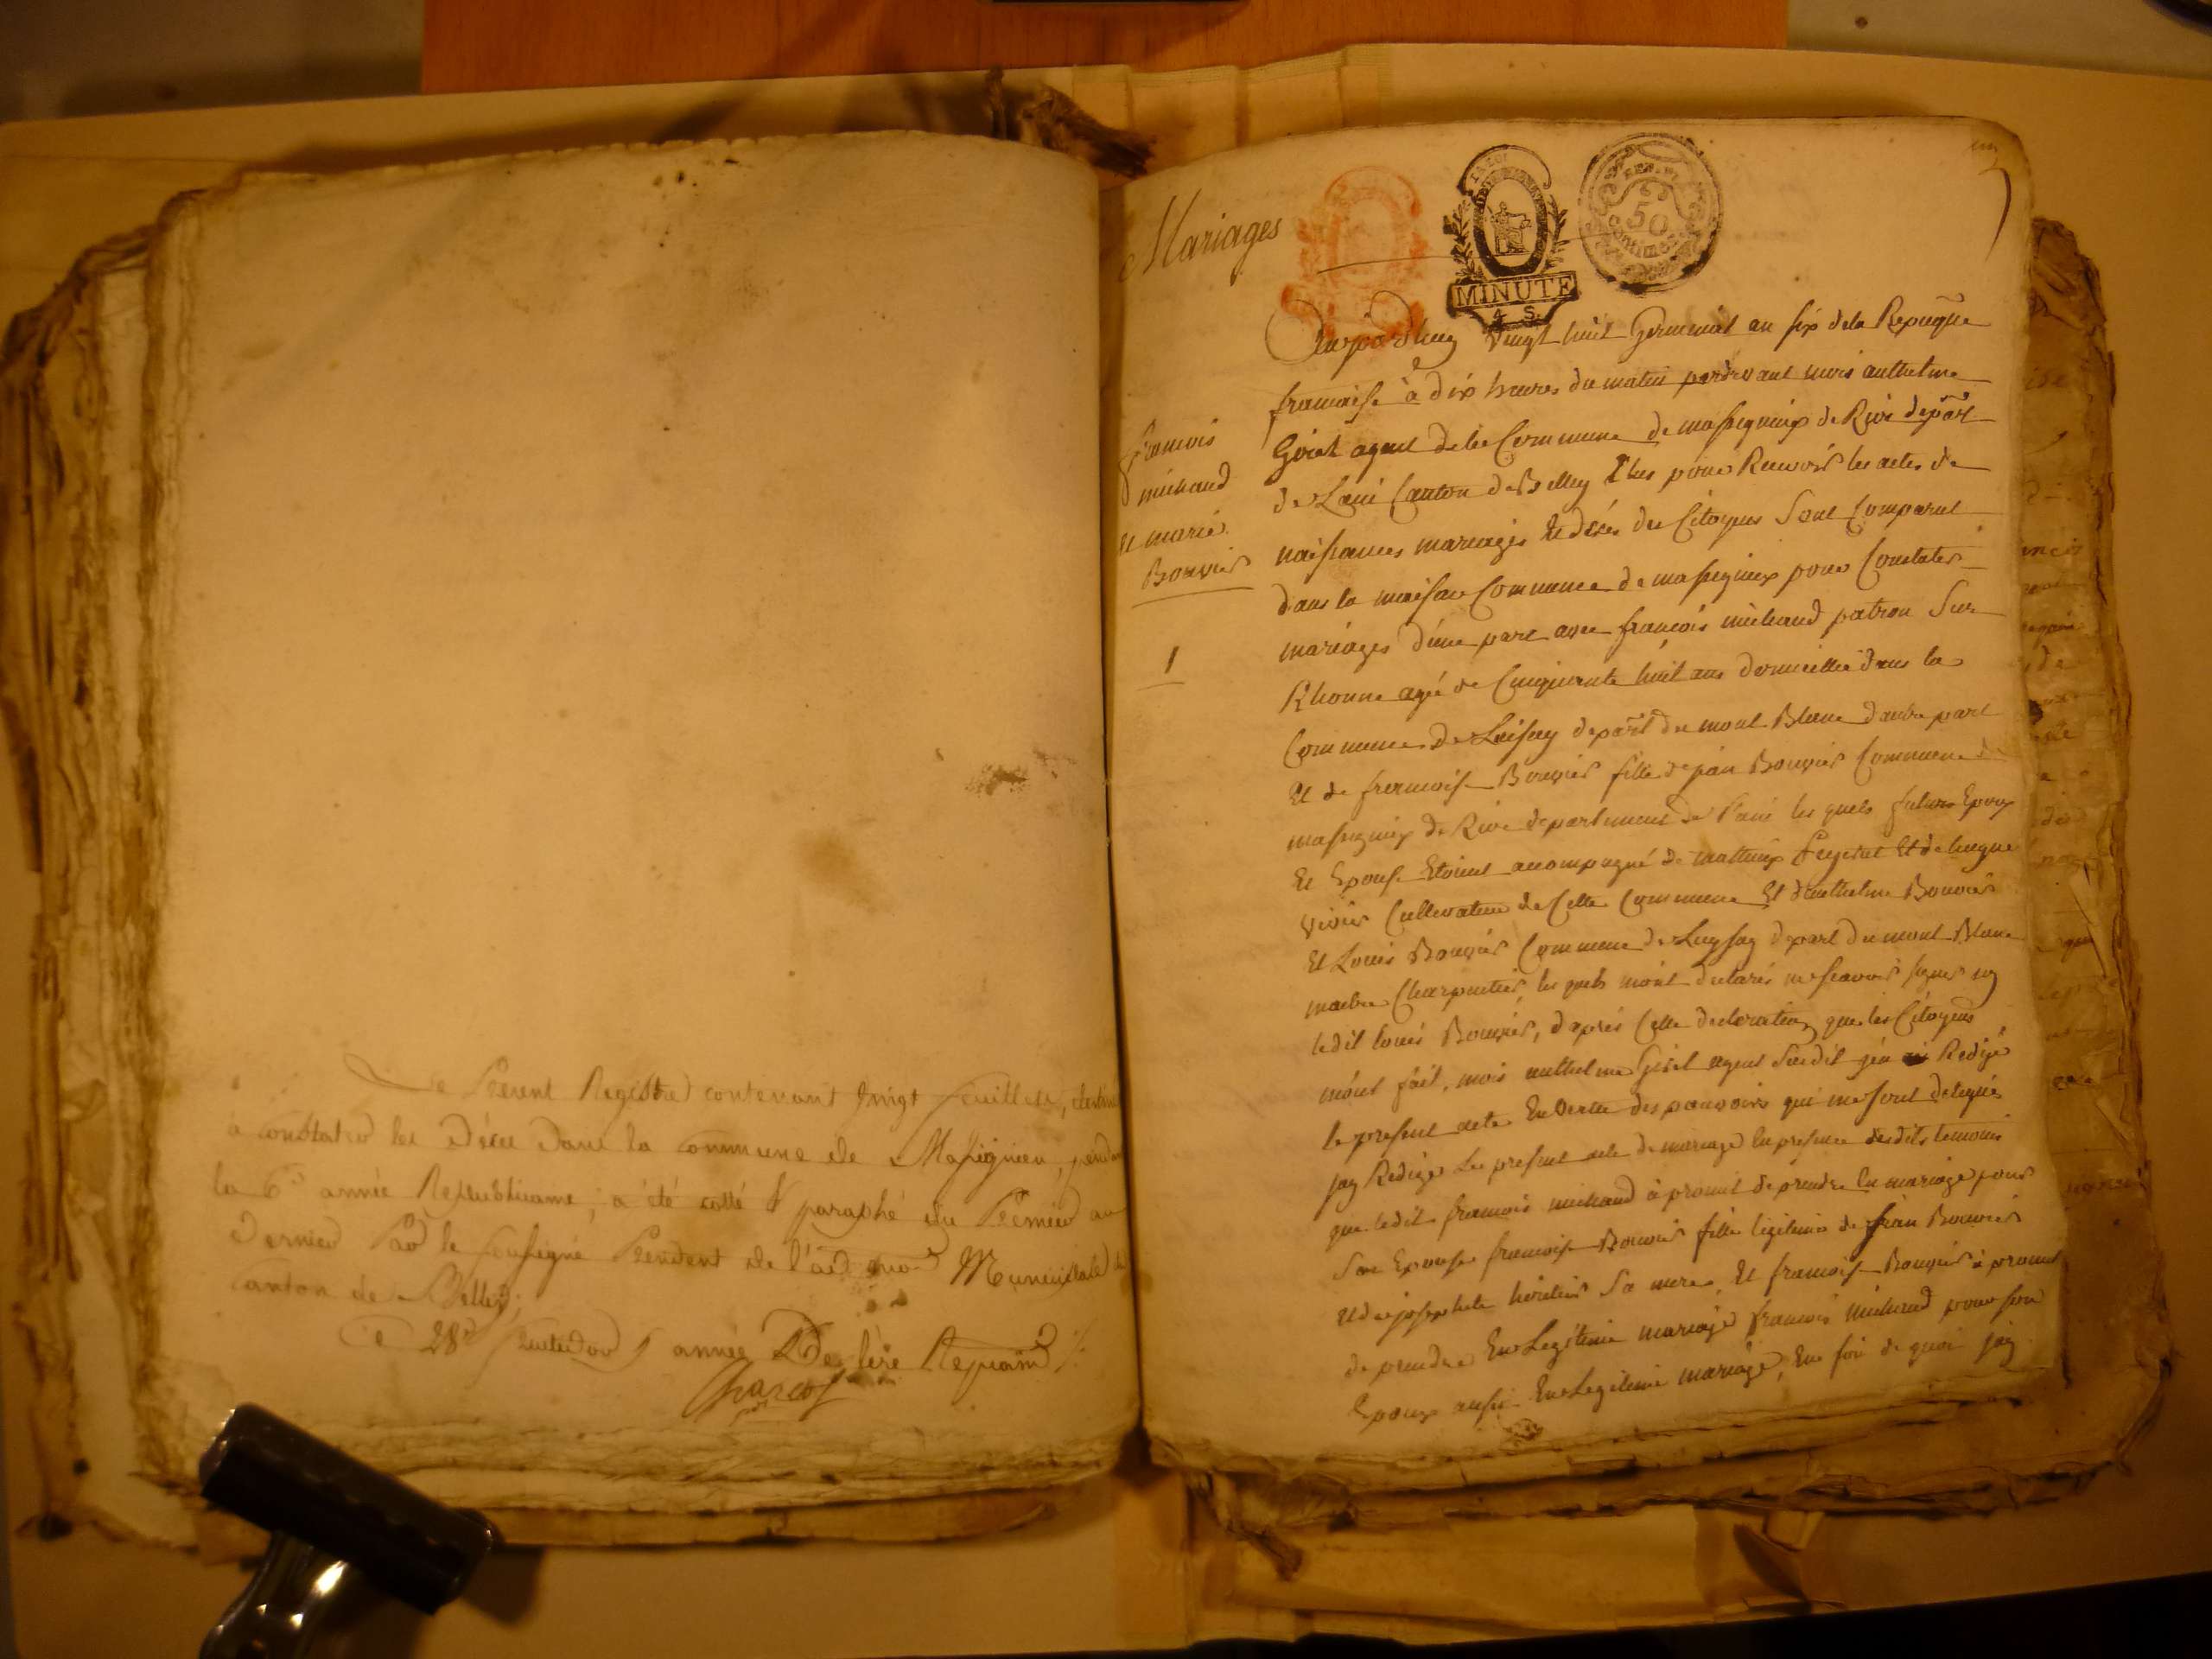 Le Présent Registre contenant vingt feuillets, destiné
a constater les Décés dans la commune de Massignieu, pendant
la 6e année Republicaine; a été cotté & paraphé du Premier au
dernier Par le soussigné Président de l'ad mon Municipale du
Canton de Belley;
Ce 28e fructidor 5 année De l'ere Repcaine
Charcot
Mariages
MINUTE
4 S.
50
Centimes
francois
michaud
et marie
Bouvier
1
Aujourdhuy vingt huit Germinal an six de la Repuque
francaise à dix heures du matin pardevant mois anthelme
Goiet agent de la Commune de massignieux de Rive depart
de Lain Canton de Belley Elus pour Recevoir les actes de
naissances mariages et décés des Citoyens Sont Comparut
dans la maison Commune de massignieux pour Constater
mariages d'une part avec françois michaud patron Sur
Rhonne agé de Cinquante huit ans domicillié dans la
Commune de Loisey depart du mont Blanc d'autre part
Et de francoise Bouvier fille de jean Bouvier Commune de
massignieux de Rive departement de l'ain les quels futurs Epoux
Et Epouse Etoient acompagné de mathieux Et de
vivier Cultivateur de Cette Commune Et d'anthelme Bouvier
Et Louis Bouvier Commune de Loysey depart du mont Blanc
maitre Charpentier, les quels mont déclarés ne scavoir signer ny
ledit louis Bouvier, d'aprés Cette declaration que les Citoyens
mont fait, mois anthelme Goiet agent Susdit j'en ai Redigé
le present acte En vertu des pouvoirs qui me sont delegués
jay Redigé Le present acte de mariage En presence desdits temoins
que ledit francois michaud à promit de prendre En mariage pour
Son Epouse francoise Bouvier fille légitime de jean Bouvier
et de josephete héritier Sa mere, Et francoise Bouvier à promit
de prendre En Legitime mariage francois michaud pour son
Epoux aussi En Legitime mariage, En foi de quoi jay